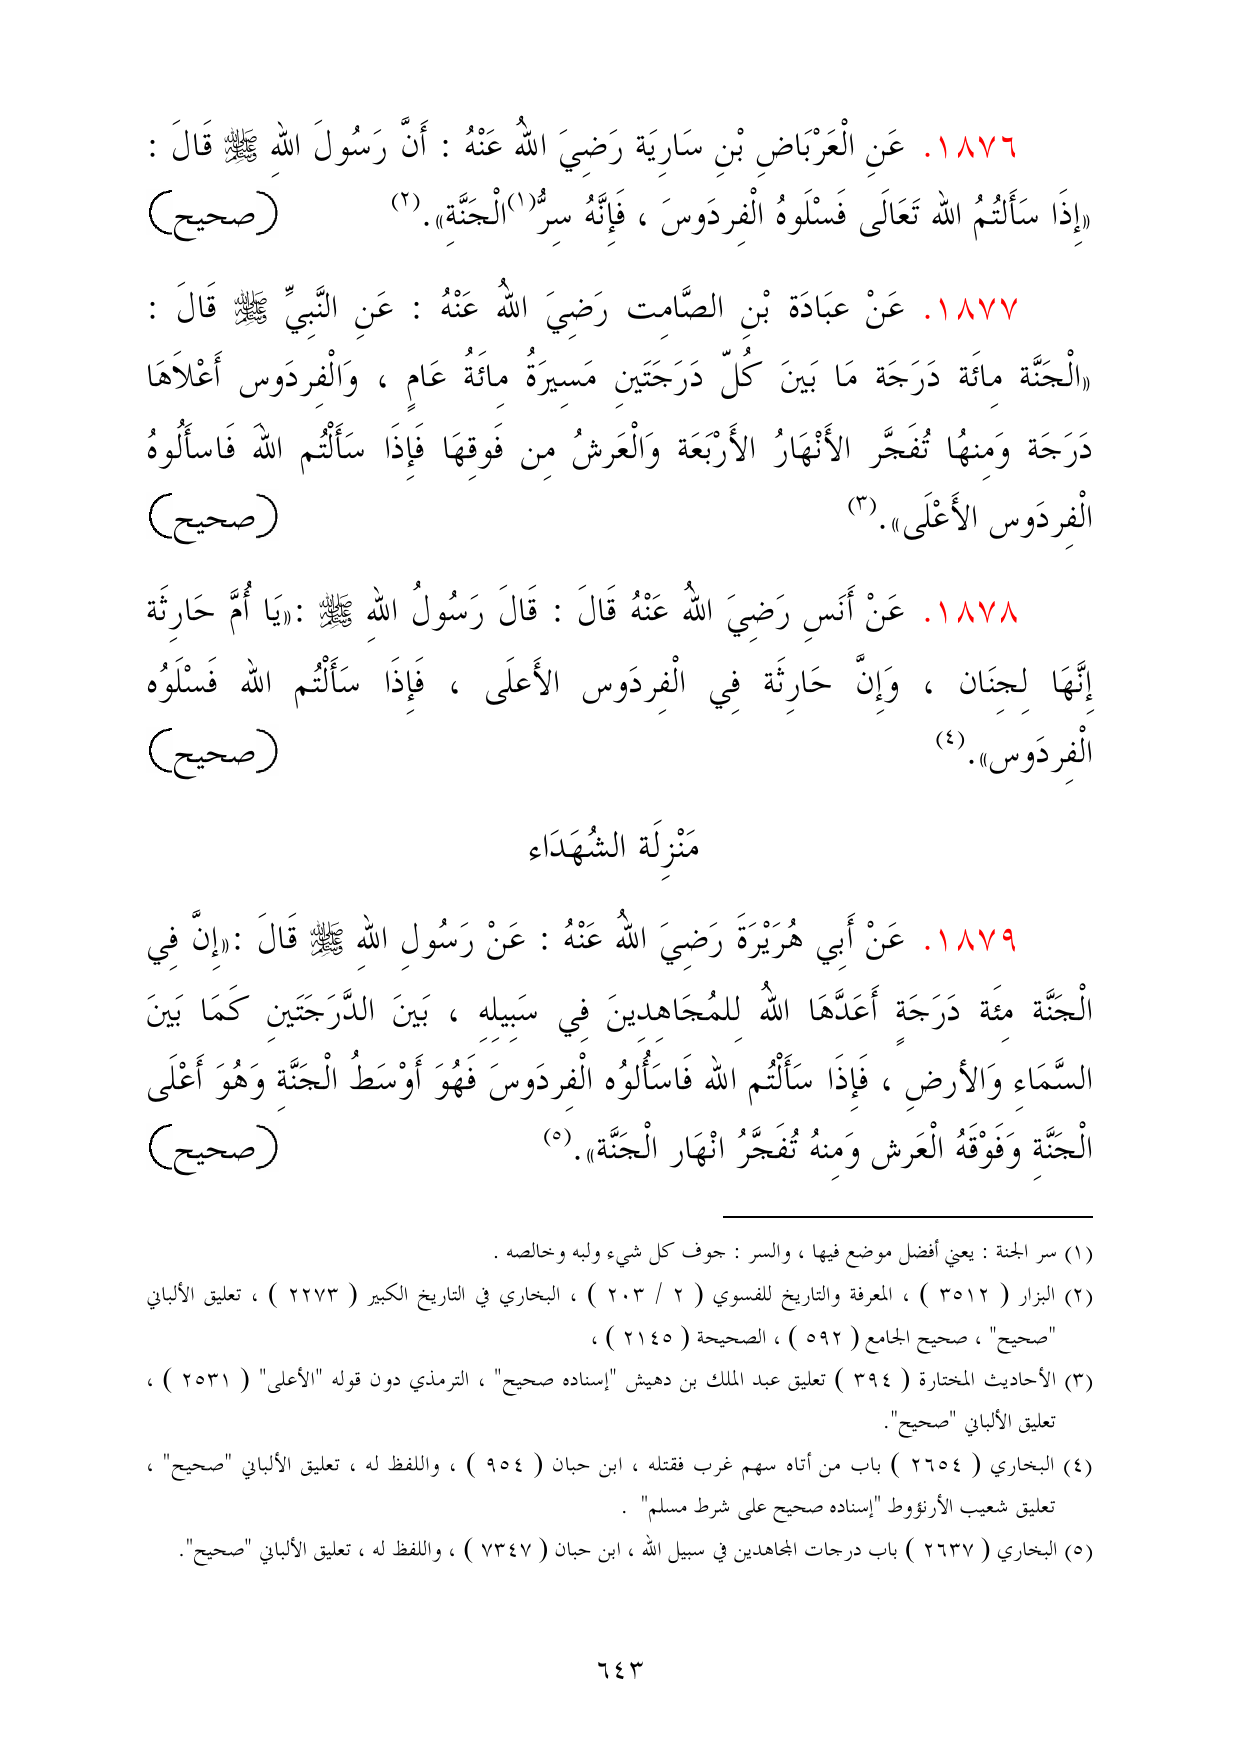 ١٨٧٦. عَنِ الْعَرْبَاضِ بْنِ سَارِيَة رَضِيَ اللهُ عَنْهُ : أَنَّ رَسُولَ اللهِ ﷺ قَالَ :
«إِذَا سَأَلتُمُ الله تَعَالَى فَسْلَوهُ الْفِردَوسَ ، فَإِنَّهُ سِرُّ(١)الْجَنَّةِ».(٢) (صحيح)
١٨٧٧. عَنْ عبَادَة بْنِ الصَّامِت رَضِيَ اللهُ عَنْهُ : عَنِ النَّبِيِّ ﷺ قَالَ :
«الْجَنَّة مِائَة دَرَجَة مَا بَينَ كُلّ دَرَجَتَينِ مَسِيرَةُ مِائَةُ عَامٍ ، وَالْفِردَوس أَعْلاَهَا
دَرَجَة وَمِنهُا تُفَجَّر الأَنْهَارُ الأَرْبَعَة وَالْعَرشُ مِن فَوقِهَا فَإِذَا سَأَلْتُم اللهَ فَاسألُوهُ
الْفِردَوس الأَعْلَى».(٣) (صحيح)
١٨٧٨. عَنْ أَنَسِ رَضِيَ اللهُ عَنْهُ قَالَ : قَالَ رَسُولُ اللهِ ﷺ :«يَا أُمَّ حَارِثَة
إِنَّهَا لِجِنَان ، وَإِنَّ حَارِثَة فِي الْفِردَوس الأَعلَى ، فَإِذَا سَأَلْتُم الله فَسْلَوُه
الْفِردَوس».(٤) (صحيح)
مَنْزِلَة الشُهَدَاء
١٨٧٩. عَنْ أَبِي هُرَيْرَةَ رَضِيَ اللهُ عَنْهُ : عَنْ رَسُولِ اللهِ ﷺ قَالَ :«إِنَّ فِي
الْجَنَّة مِئَة دَرَجَةٍ أَعَدَّهَا اللهُ لِلمُجَاهِدِينَ فِي سَبِيلِهِ ، بَينَ الدَّرَجَتَينِ كَمَا بَينَ
السَّمَاءِ وَالأرضِ ، فَإِذَا سَأَلْتُم الله فَاسَأُلوُه الْفِردَوسَ فَهُوَ أَوْسَطُ الْجَنَّةِ وَهُوَ أَعْلَى
الْجَنَّةِ وَفَوْقَهُ الْعَرش وَمِنهُ تُفَجَّرُ انْهَار الْجَنَّة».(٥) (صحيح)
(١) سر الجنة : يعني أفضل موضع فيها ، والسر : جوف كل شيء ولبه وخالصه .
(٢) البزار ( ٣٥١٢ ) ، المعرفة والتاريخ للفسوي ( ٢ / ٢٠٣ ) ، البخاري في التاريخ الكبير ( ٢٢٧٣ ) ، تعليق الألباني
"صحيح" ، صحيح الجامع ( ٥٩٢ ) ، الصحيحة ( ٢١٤٥ ) ،
(٣) الأحاديث المختارة ( ٣٩٤ ) تعليق عبد الملك بن دهيش "إسناده صحيح" ، الترمذي دون قوله "الأعلى" ( ٢٥٣١ ) ،
تعليق الألباني "صحيح".
(٤) البخاري ( ٢٦٥٤ ) باب من أتاه سهم غرب فقتله ، ابن حبان ( ٩٥٤ ) ، واللفظ له ، تعليق الألباني "صحيح" ،
تعليق شعيب الأرنؤوط "إسناده صحيح على شرط مسلم" .
(٥) البخاري ( ٢٦٣٧ ) باب درجات المجاهدين في سبيل الله ، ابن حبان ( ٧٣٤٧ ) ، واللفظ له ، تعليق الألباني "صحيح".
٦٤٣